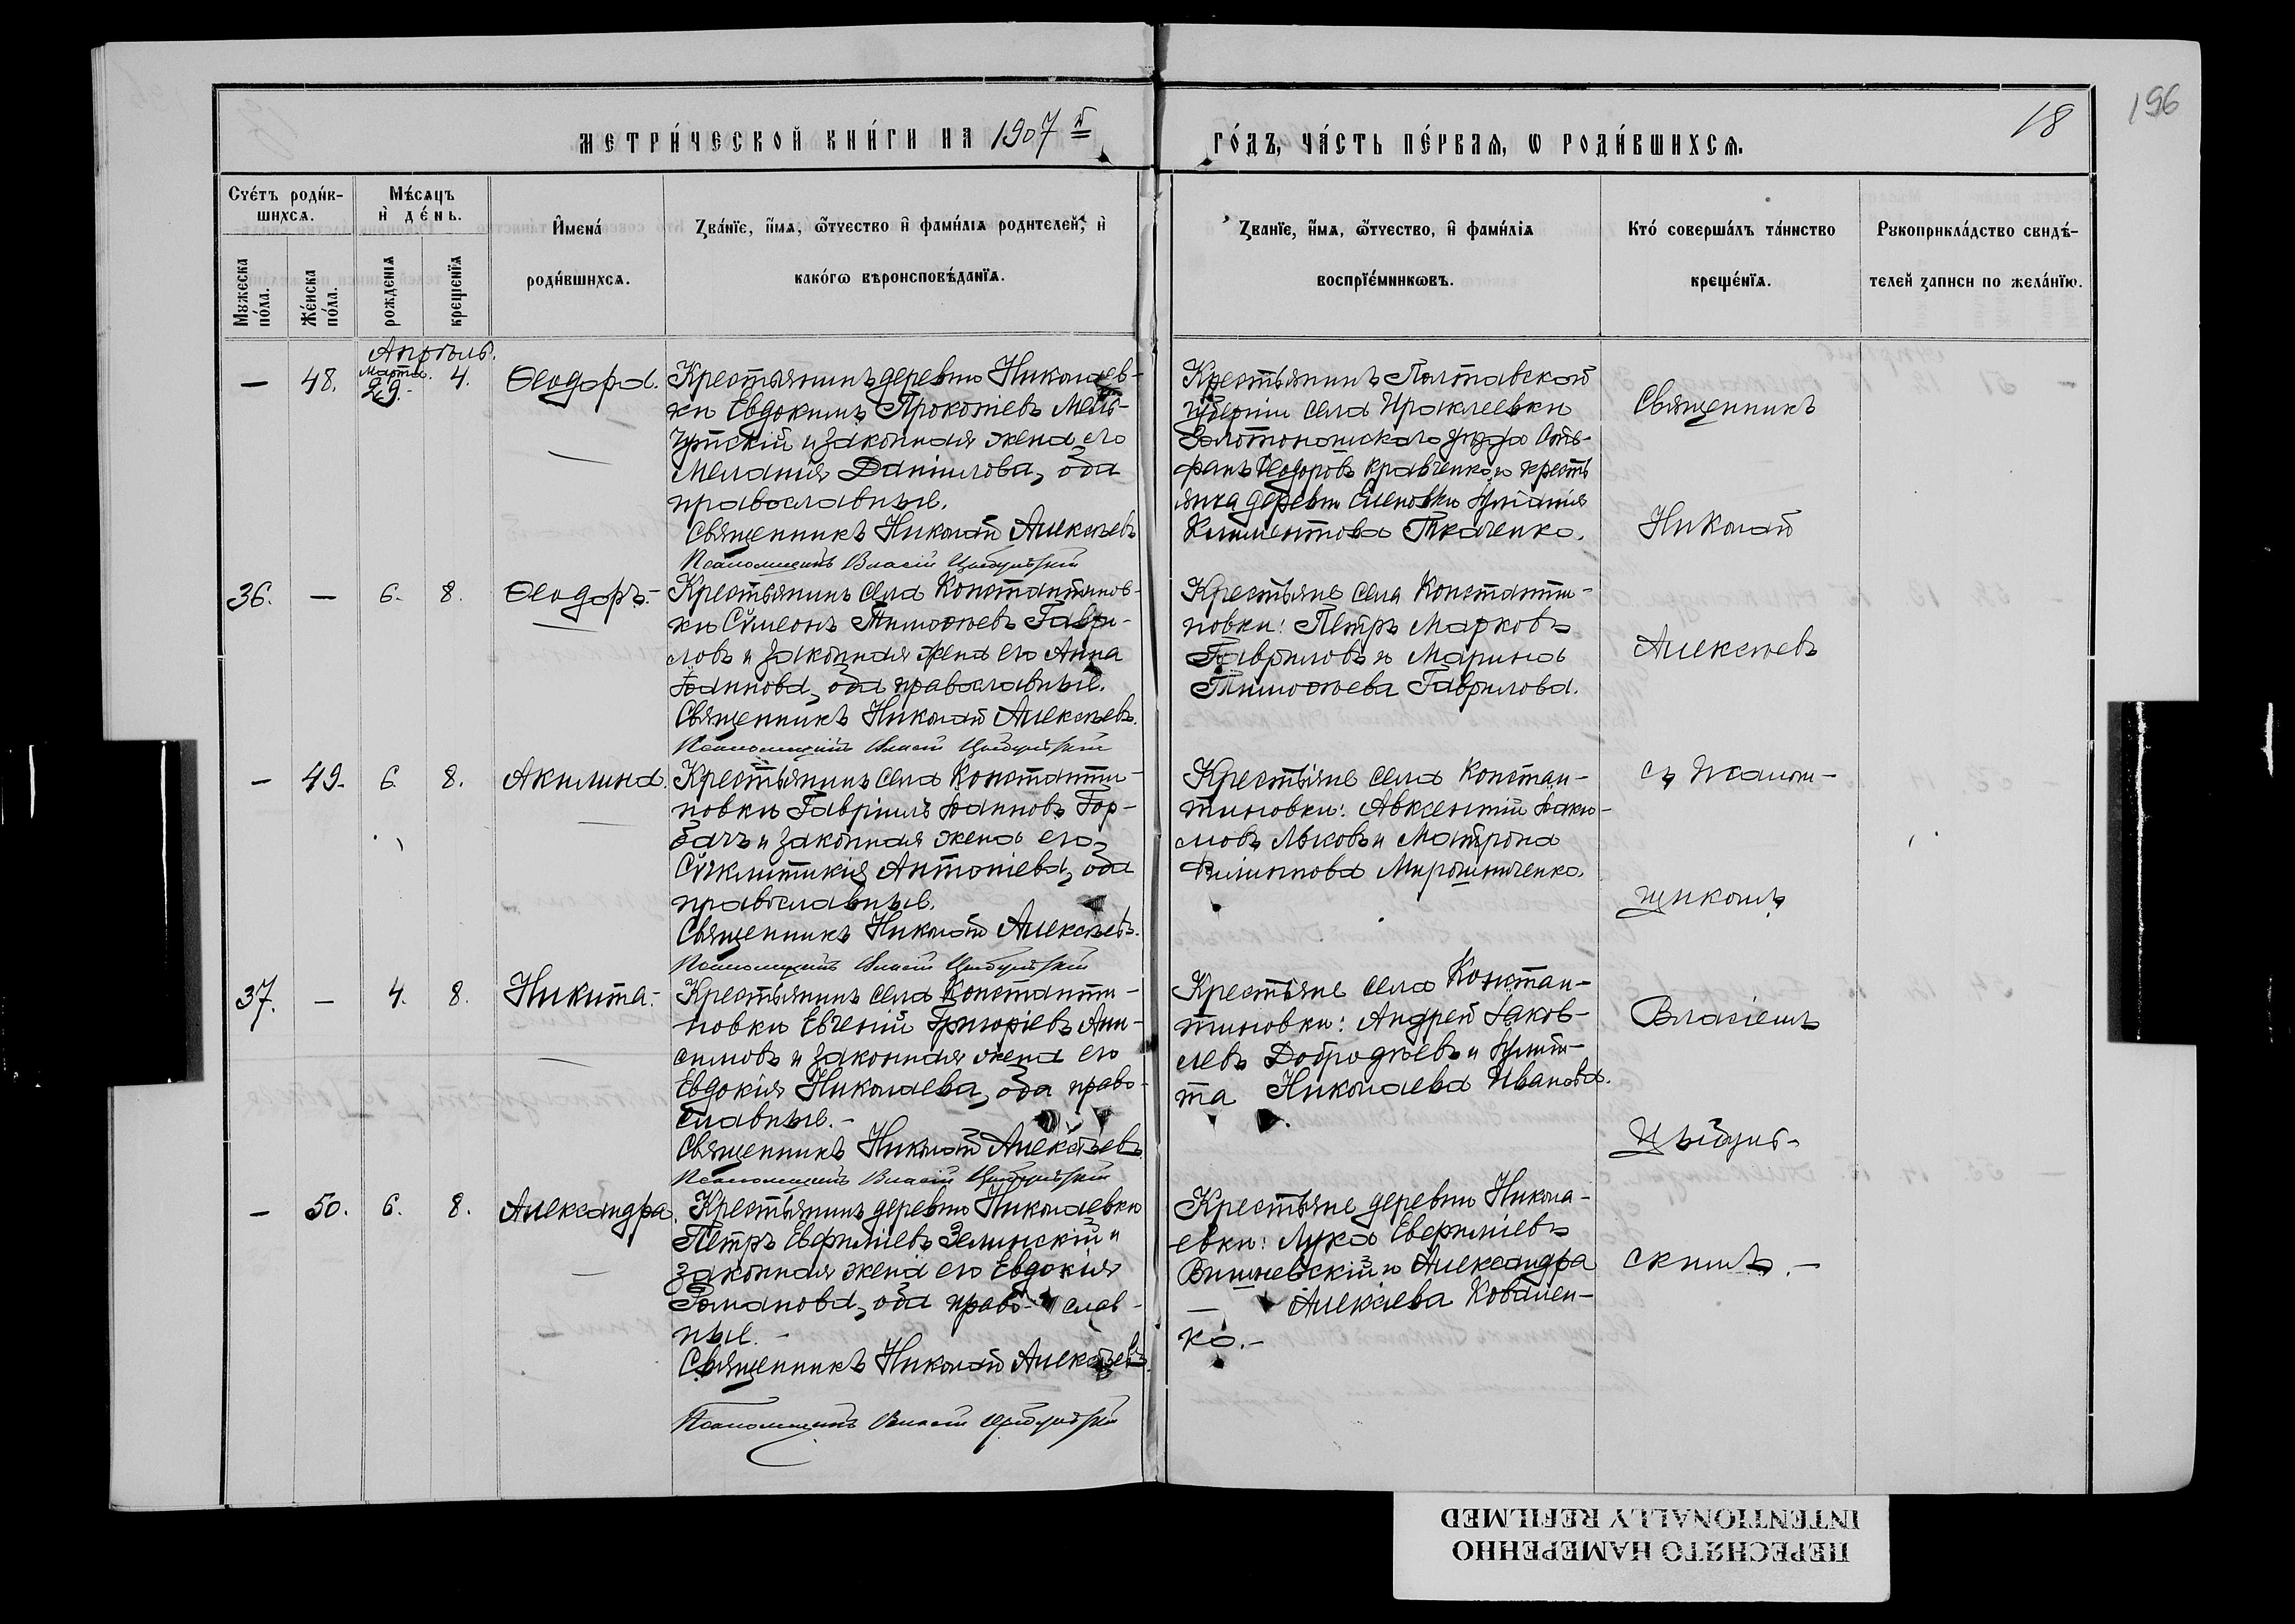 196
18
МЕТРИ́ЧЕСКОЙ КНИ́ГИ НА 1907й
ГО́ДЪ, ЧА́СТЬ ПЕ́РВАЯ, Ѡ РОДИ́ВШИХСЯ.
Сче́тъ роди́в-
шихся.
Мужеска
по́ла.
Же́нска
по́ла.
Мѣ́сяцъ
и де́нь.
рожденія
крещенїя
Имена́
роди́вшихся.
Зва́нїе, и́мя, ѻ́тчество и фами́лїя родителей, и
како́гѡ вѣроисповѣ́данїя.
Званїе, и́мя, ѻ́тчество, и фами́лїя
воспрїе́мникѡвъ.
Кто́ соверша́лъ та́инство
креще́нїя.
Рукоприкла́дство свидѣ́-
телей записи по жела́нїю.
Апрѣль.
— 48. Марта. 29. 4. Ѳеодора.
Крестьянинъ деревни Николаев-
ки Евдокимъ Прокопіевъ
и законная жена его
Меланія Даніилова, оба
православные.
Священникъ Николай Алексѣевъ
Псаломщикъ Власій Цыбульскій
Крестьянинъ Полтавской
губерніи села Ираклеевки
Золотоношскаго уѣзда Сте-
фанъ Ѳеодоровъ Кравченко и кресть
янка деревни Еленовки Іуліанія
Климентова Ткаченко.
36. — 6. 8. Ѳеодоръ.-
Крестьянинъ села Константинов-
ки Сѵмеонъ Тимоѳеевъ Гаври-
ловъ и законная жена его Анна
Іоаннова, оба православные.
Священникъ Николай Алексѣевъ.
Псаломщикъ Власій Цыбульскій
Крестьяне села Константи-
новки: Петръ Марковъ
Гавриловъ и Марина
Тимоѳеева Гаврилова.
— 49. 6. 8. Акилина.
Крестьянинъ села Константи-
новки Гавріилъ Іоанновъ Гор-
бачъ и законная жена его,
Сѵнклитикія Антоніева, оба
православные.
Священникъ Николай Алексѣевъ.
Псаломщикъ Власій Цыбульскій
Крестьяне села Констан-
тиновки: Авксентій Іаки-
мовъ Лысовъ и Матрона
Филиппова Мирошниченко.
37. — 4. 8. Никита.-
Крестьянинъ села Константи-
новки Евгеній Григоріевъ Ани-
симовъ и законная жена его
Евдокія Николаева, оба право-
славные.-
Священникъ Николай Алексѣевъ
Псаломщикъ Власій Цыбульскій
Крестьяне села Констан-
тиновки: Андрей Іаков-
левъ Добродѣевъ и Іулит-
та Николаева Иванова.
— 50. 6. 8. Александра.
Крестьянинъ деревни Николаевки
Петръ Евфиміевъ Зелинскій и
законная жена его Евдокія
Романова, оба право- слав-
ные.-
Священникъ Николай Алексѣевъ.
Псаломщикъ Власій Цыбульскій
Крестьяне деревни Никола-
евки: Лука Евфиміевъ
Вишневскій и Александра
— Алексѣева Ковален-
ко.-
Священникъ
Николай
Алексѣевъ
съ Псалом-
щикомъ
Власіемъ
Цыбуль-
скимъ.-
ПЕРЕСНЯТО НАМЕРЕННО
INTENTIONALLY REFILMED